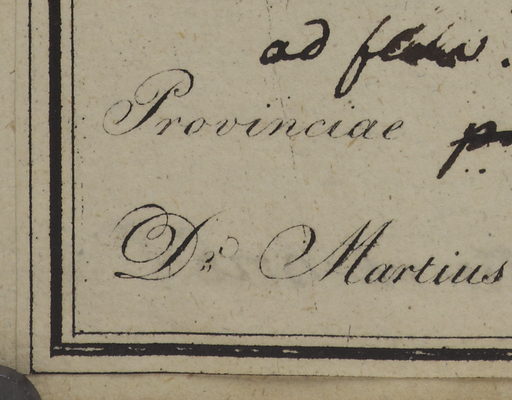 ad flum.
Provinciae
Dr. Martius